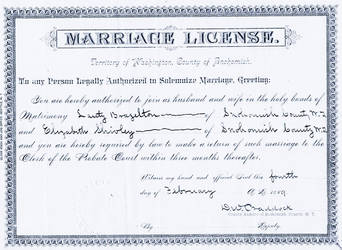 MARRIAGE LICENSE.
Territory of Washington, County of Snohomish.
To any Person Legally Authorized to Solemnize Marriage, Greeting:
You are hereby authorized to join as husband and wife in the holy bonds of
Matrimony Lusty Brazelton of Snohomish County W.T.
and Elizabeth Shivley of Snohomish County W.T.
and you are hereby required by law to make a return of such marriage to the
Clerk of the Probate Court within three months thereafter.
Witness my hand and official Seal this fourth
day of February A.D. 1889
County Auditor of Snohomish County, W. T.
By Deputy